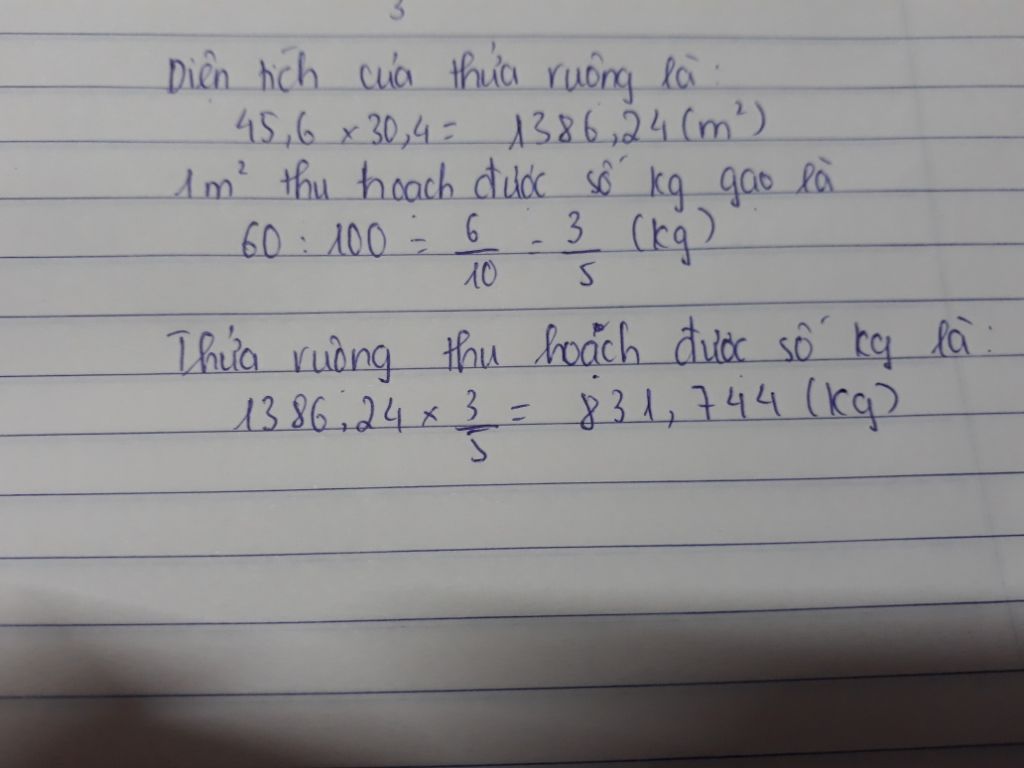 3
Diện tích của thửa ruộng là:
45,6 × 30,4 = 1386,24 (m²)
1m² thu hoạch được số kg gạo là
60 : 100 = 6/10 = 3/5 (kg)
Thửa ruộng thu hoạch được số kg là:
1386,24 × 3/5 = 831,744 (kg)